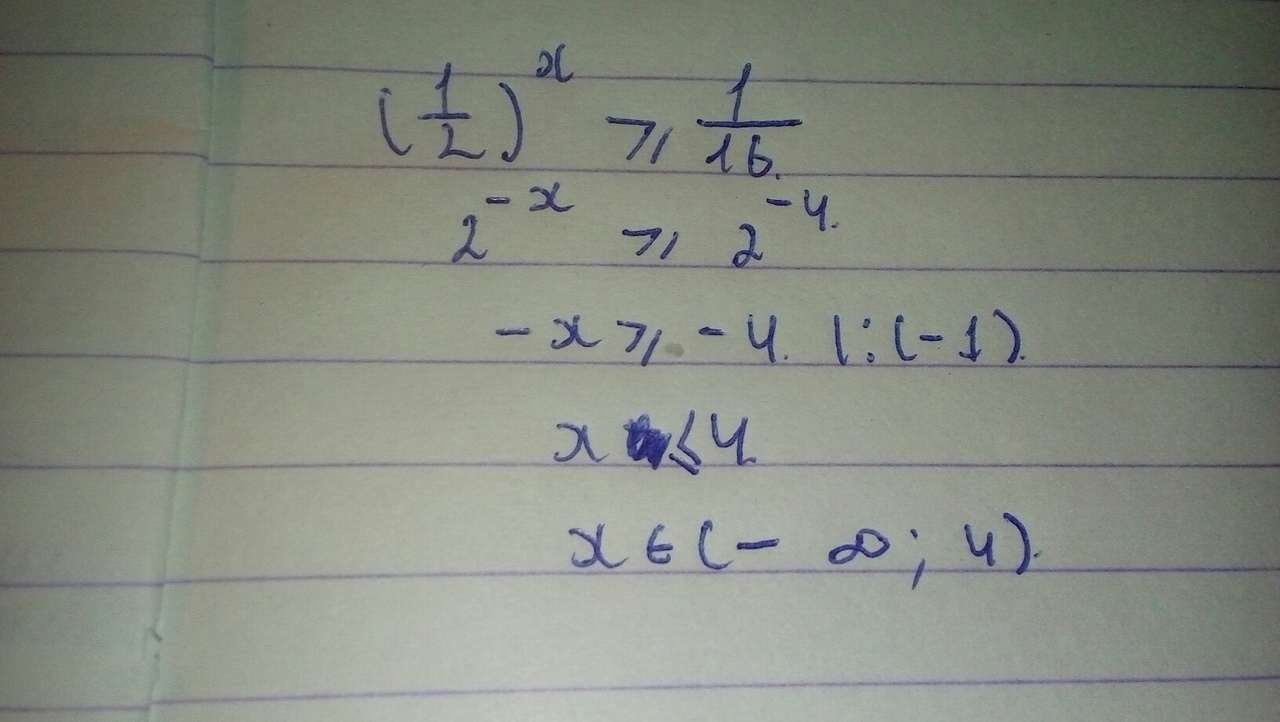 (1/2)^x ⩾ 1/16.
2^-x ⩾ 2^-4.
-x ⩾ -4. |:(-1).
x ⩽ 4.
x ∈ (- ∞; 4).